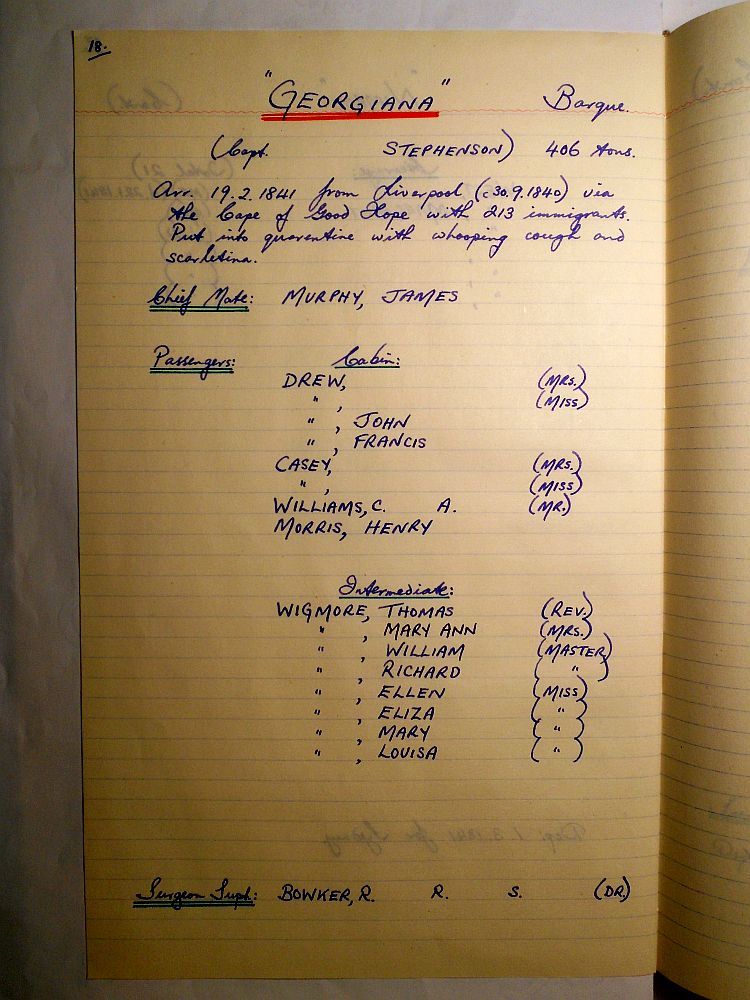 18.
"GEORGIANA" Barque.
(Capt. STEPHENSON) 406 tons.
Arr. 19.2.1841 from Liverpool (c30.9.1840) via
the Cape of Good Hope with 213 immigrants.
Put into quarentine with whooping cough and
scarletina.
Chief Mate: MURPHY, JAMES
Passengers: Cabin:
DREW, (MRS.)
" , (MISS)
" , JOHN
" , FRANCIS
CASEY, (MRS.)
" , (MISS)
WILLIAMS, C. A. (MR.)
MORRIS, HENRY
Intermediate:
WIGMORE, THOMAS (REV.)
" , MARY ANN (MRS.)
" , WILLIAM (MASTER)
" , RICHARD ( " )
" , ELLEN (MISS)
" , ELIZA ( " )
" , MARY ( " )
" , LOUISA ( " )
Surgeon Supt: BOWKER, R. R. S. (DR.)